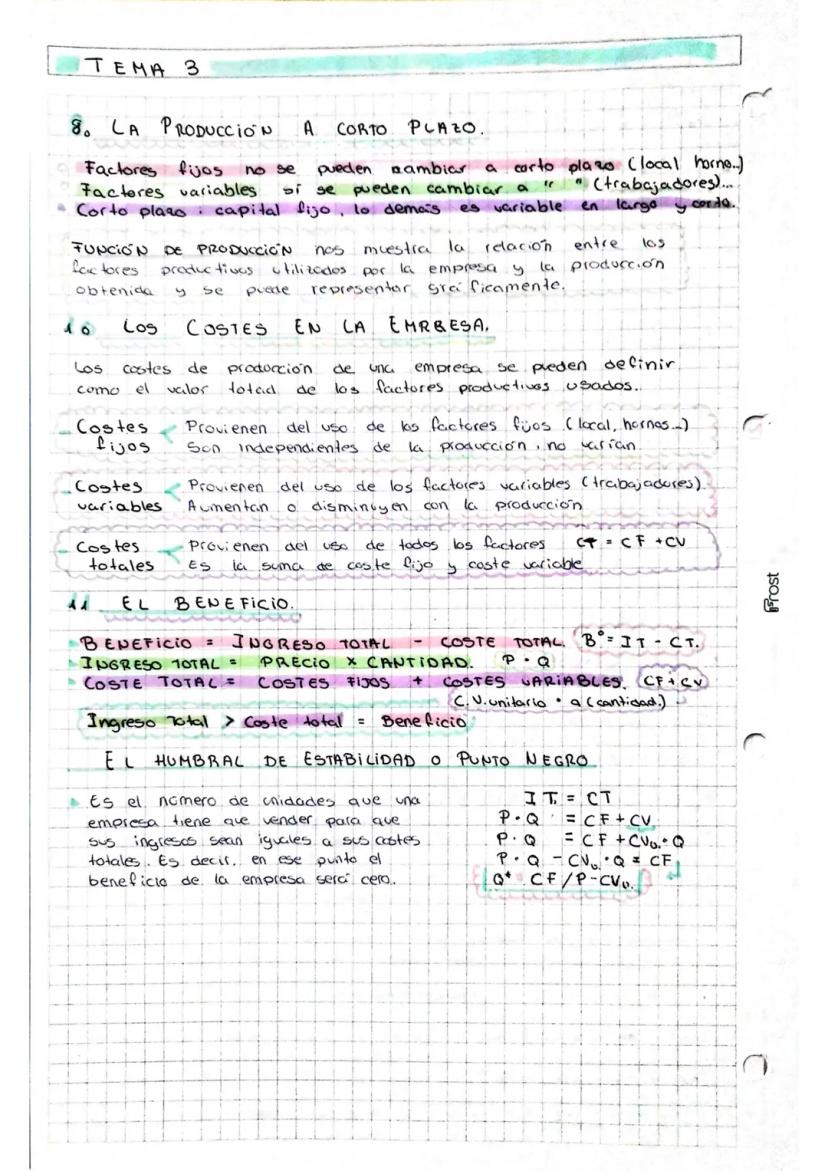 TEMA 3
8. LA PRODUCCIÓN A CORTO PLAZO.
Factores fijos no se pueden cambiar a corto plazo (local horno...)
Factores variables sí se pueden cambiar a " " (trabajadores)...
Corto plazo: capital fijo, lo demás es variable en largo y corto.
FUNCIÓN DE PRODUCCIÓN nos muestra la relación entre los
factores productivos utilizados por la empresa y la producción
obtenida y se puede representar gráficamente.
10 LOS COSTES EN LA EMRBESA.
Los costes de producción de una empresa se pueden definir
como el valor total de los factores productivos usados.
- Costes < Provienen del uso de los factores fijos (local, hornos...)
fijos Son independientes de la producción, no varían
- Costes < Provienen del uso de los factores variables (trabajadores).
variables Aumentan o disminuyen con la producción
- Costes < Provienen del uso de todos los factores CT = CF + CV
totales Es la suma de coste fijo y coste variable
11 EL BENEFICIO.
BENEFICIO = INGRESO TOTAL - COSTE TOTAL. Bº = IT - CT.
INGRESO TOTAL = PRECIO X CANTIDAD. P · Q
COSTE TOTAL = COSTES FIJOS + COSTES VARIABLES. CF + CV
C.V. unitario · Q (cantidad.)
Ingreso Total > Coste total = Beneficio
EL HUMBRAL DE ESTABILIDAD O PUNTO NEGRO
Es el número de unidades que una
empresa tiene que vender para que
sus ingresos sean iguales a sus costes
totales. Es decir, en ese punto el
beneficio de la empresa será cero.
IT = CT
P · Q = CF + CV
P · Q = CF + CVu · Q
P · Q - CVu · Q = CF
Q* CF / P - CVu.
Frost